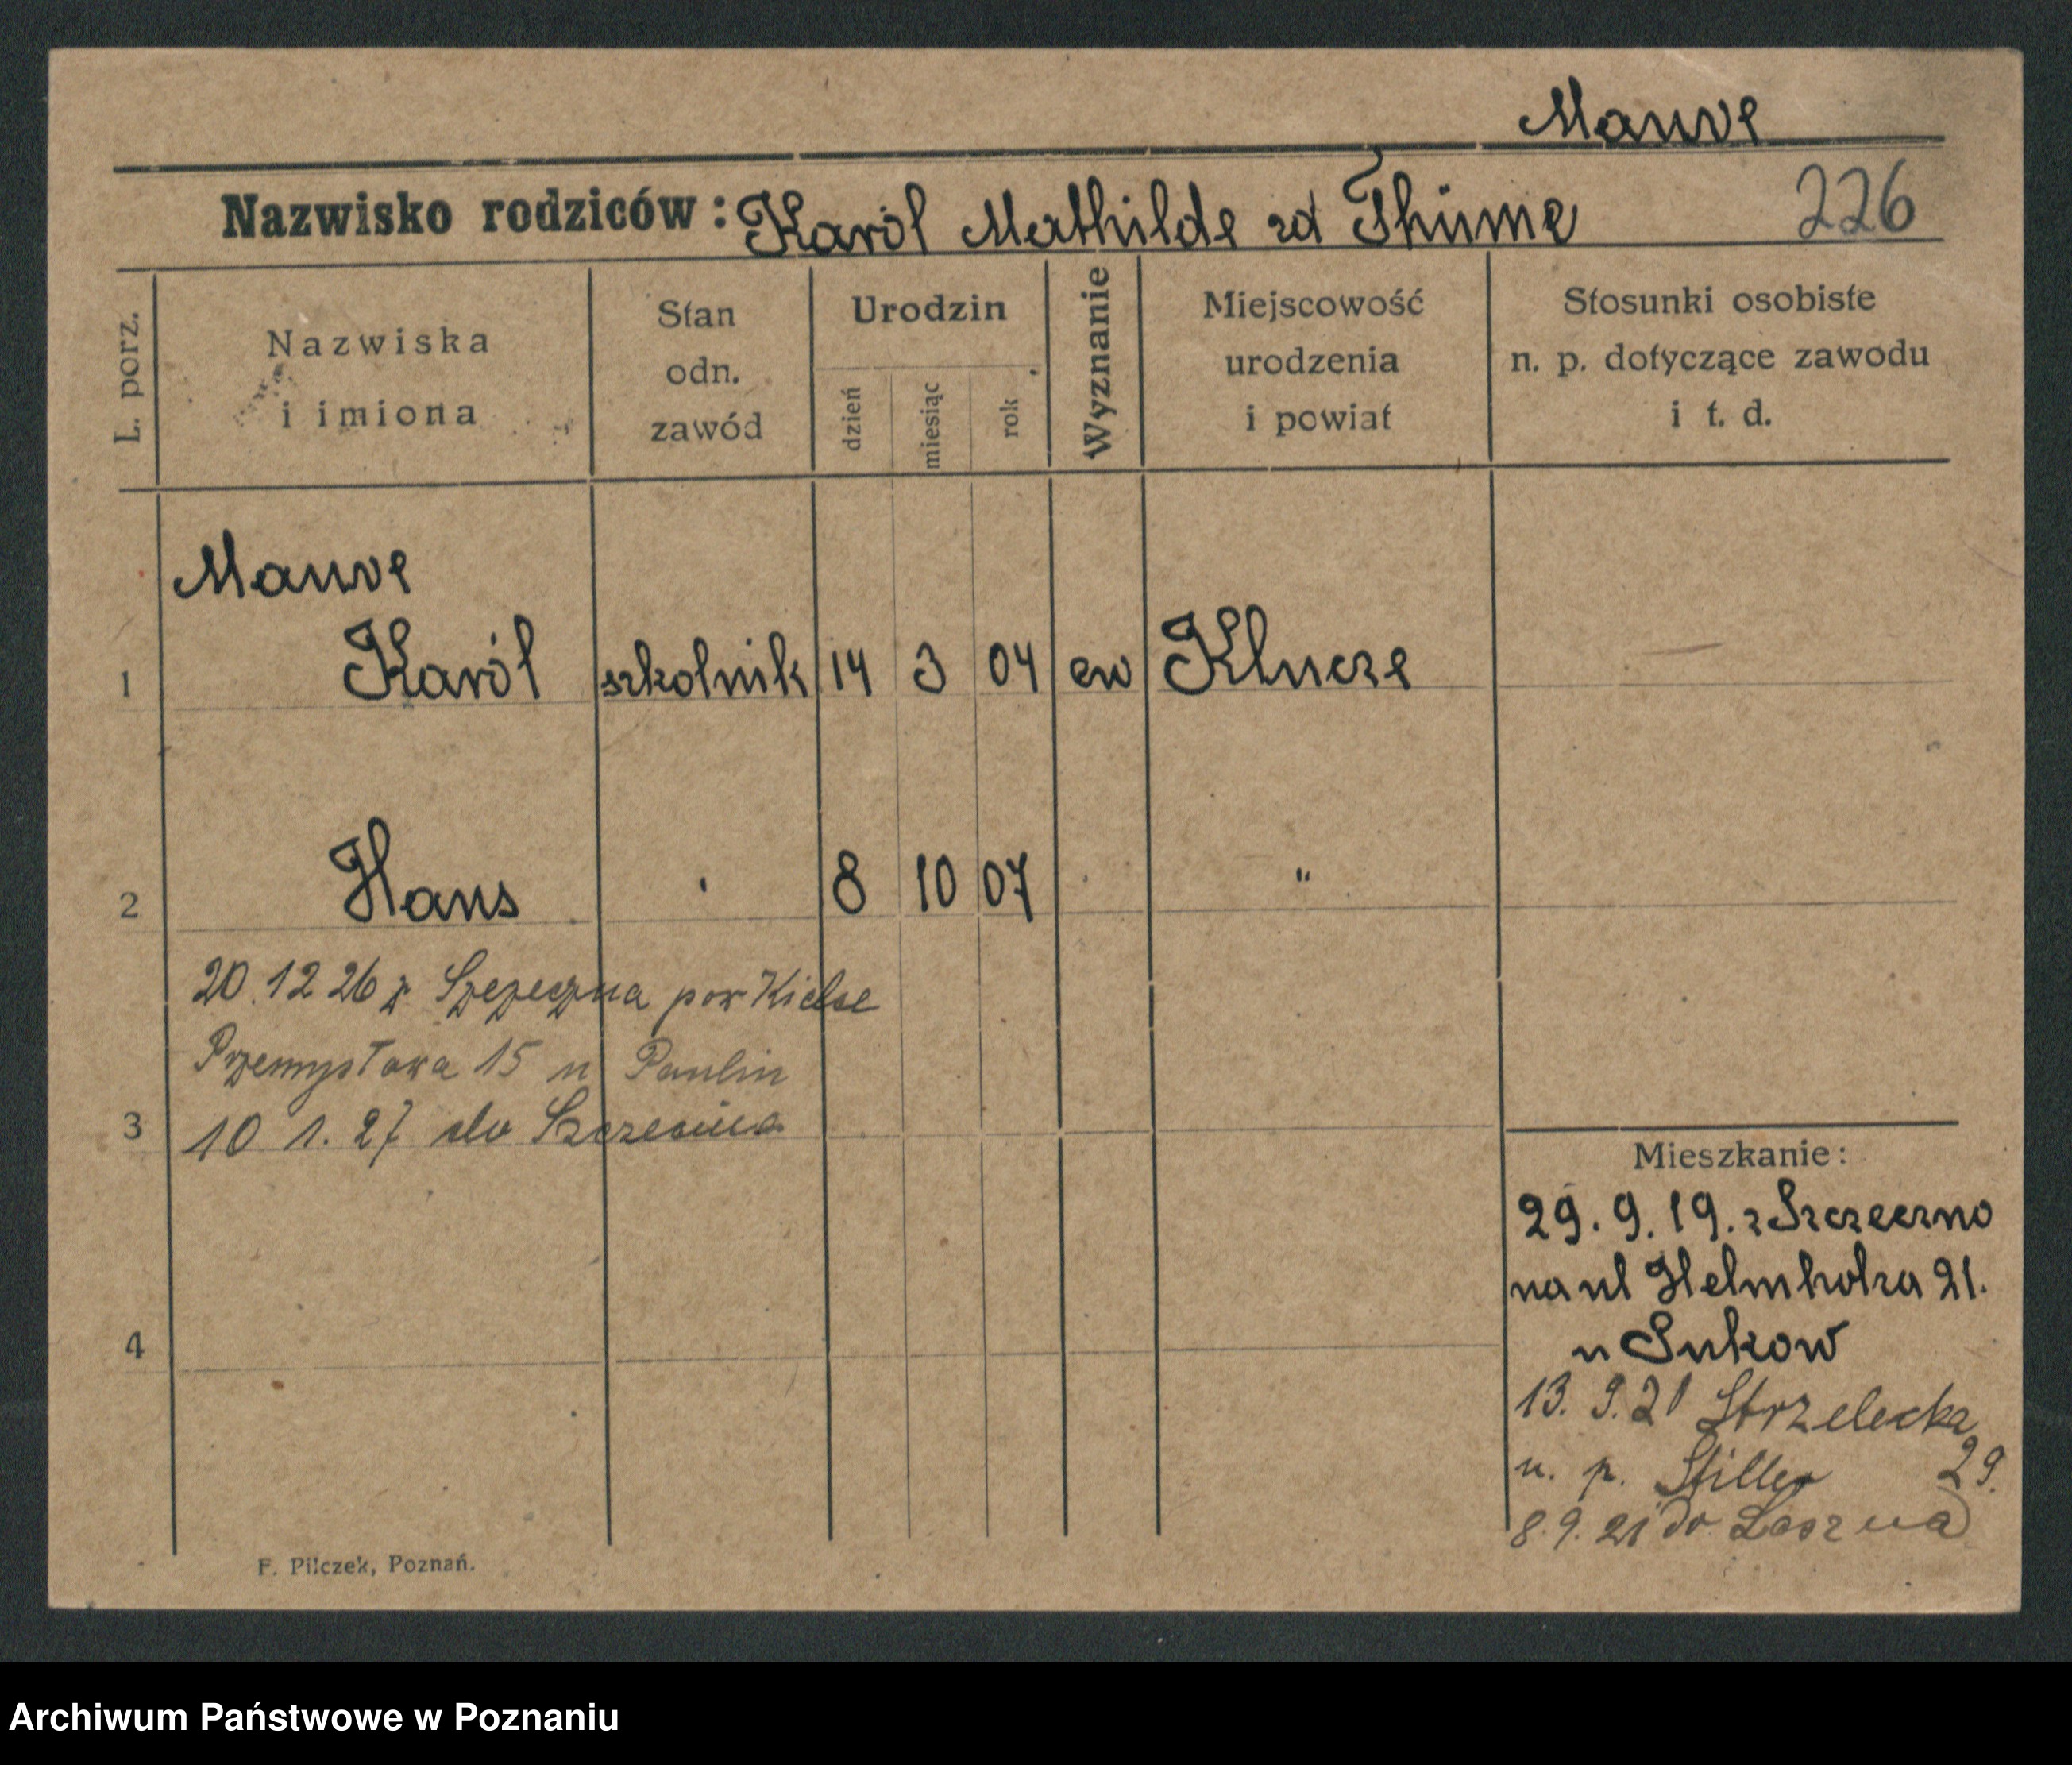 Mauve
Nazwisko rodziców: Karól Mathilde zd Thüme 226
L. porz.
Nazwiska
i imiona
Stan
odn.
zawód
Urodzin
dzień
miesiąc
rok
Wyznanie
Miejscowość
urodzenia
i powiat
Stosunki osobiste
n. p. dotyczące zawodu
i t. d.
Mauve
1 Karól szkolnik 14 3 04 ew Klucze
2 Hans 8 10 07 "
20.12 26 z pow Kielce
Przemysława 15 u Paulin
3 10 1. 27 do
4
Mieszkanie:
29. 9. 19. z Szczeczno
na ul Helmholza 21.
u Sukow
13. 9. 21 Strzelecka
u. p. Stiller 29.
8. 9. 21 do
F. Pilczek, Poznań.
Archiwum Państwowe w Poznaniu